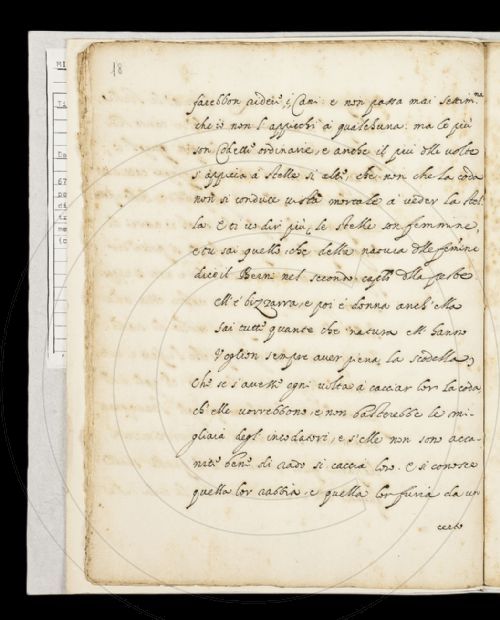 18
farebbon rider i Cani e non passa mai settim.na
che io non l'appicchi a qualcheduna: ma le più
son Codette ordinarie, e anche il più delle volte
s'appicca a stelle sì alte, che non che la coda
non si conduce vista mortale a veder la stel-
la. E ti vo dir più, le stelle son femmine,
e tu sai quello, che della natura delle femine
dice il Berni nel secondo cap.lo della peste
Ell'è bizzarra, e poi è donna anch'ella
Sai tutte quante che natura ell'hanno
Voglion sempre aver piena la scodella,
Che se s'avesse ogni volta a cacciar lor la coda,
ch'elle vorrebbono, e non basterebbe le mi-
gliaia degl'incodatori, e s'elle non sono acca-
nite ben di rado si caccia loro. E si conosce
quella lor rabbia, e quella lor furia da un
certo
MI
Ti
Da
67
po
di